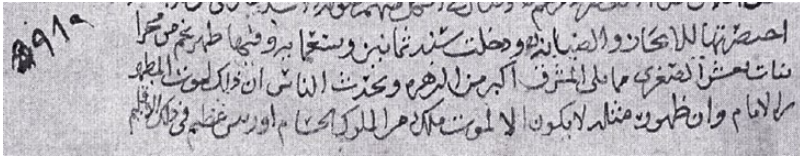 اختصرتها للايجاز والصيانه ودخلت سنه ثمانين وسبعمايه وفيها ظهر نجم من مجرا
بنات نعش الصغرى مما يلى المشرق اكبر من الزهره وتحدث الناس ان ذلك لموت المطهر
الامام وان ظهور مثله لا يكون الا لموت ملك من الملوك او رييس عظيم في ذلك الاقليم